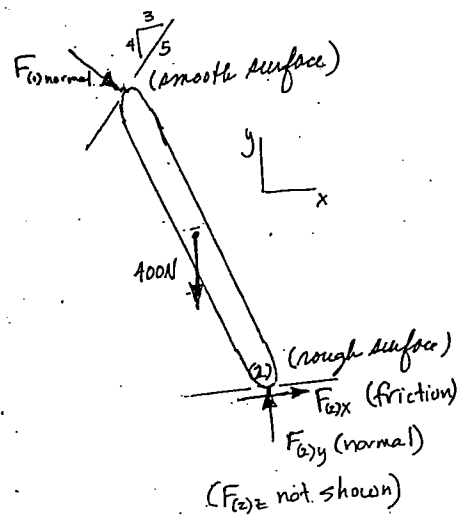 3
4 5
F(1)normal (smooth surface)
y
x
400N
(2) (rough surface)
F(2)x (friction)
F(2)y (normal)
(F(2)z not shown)